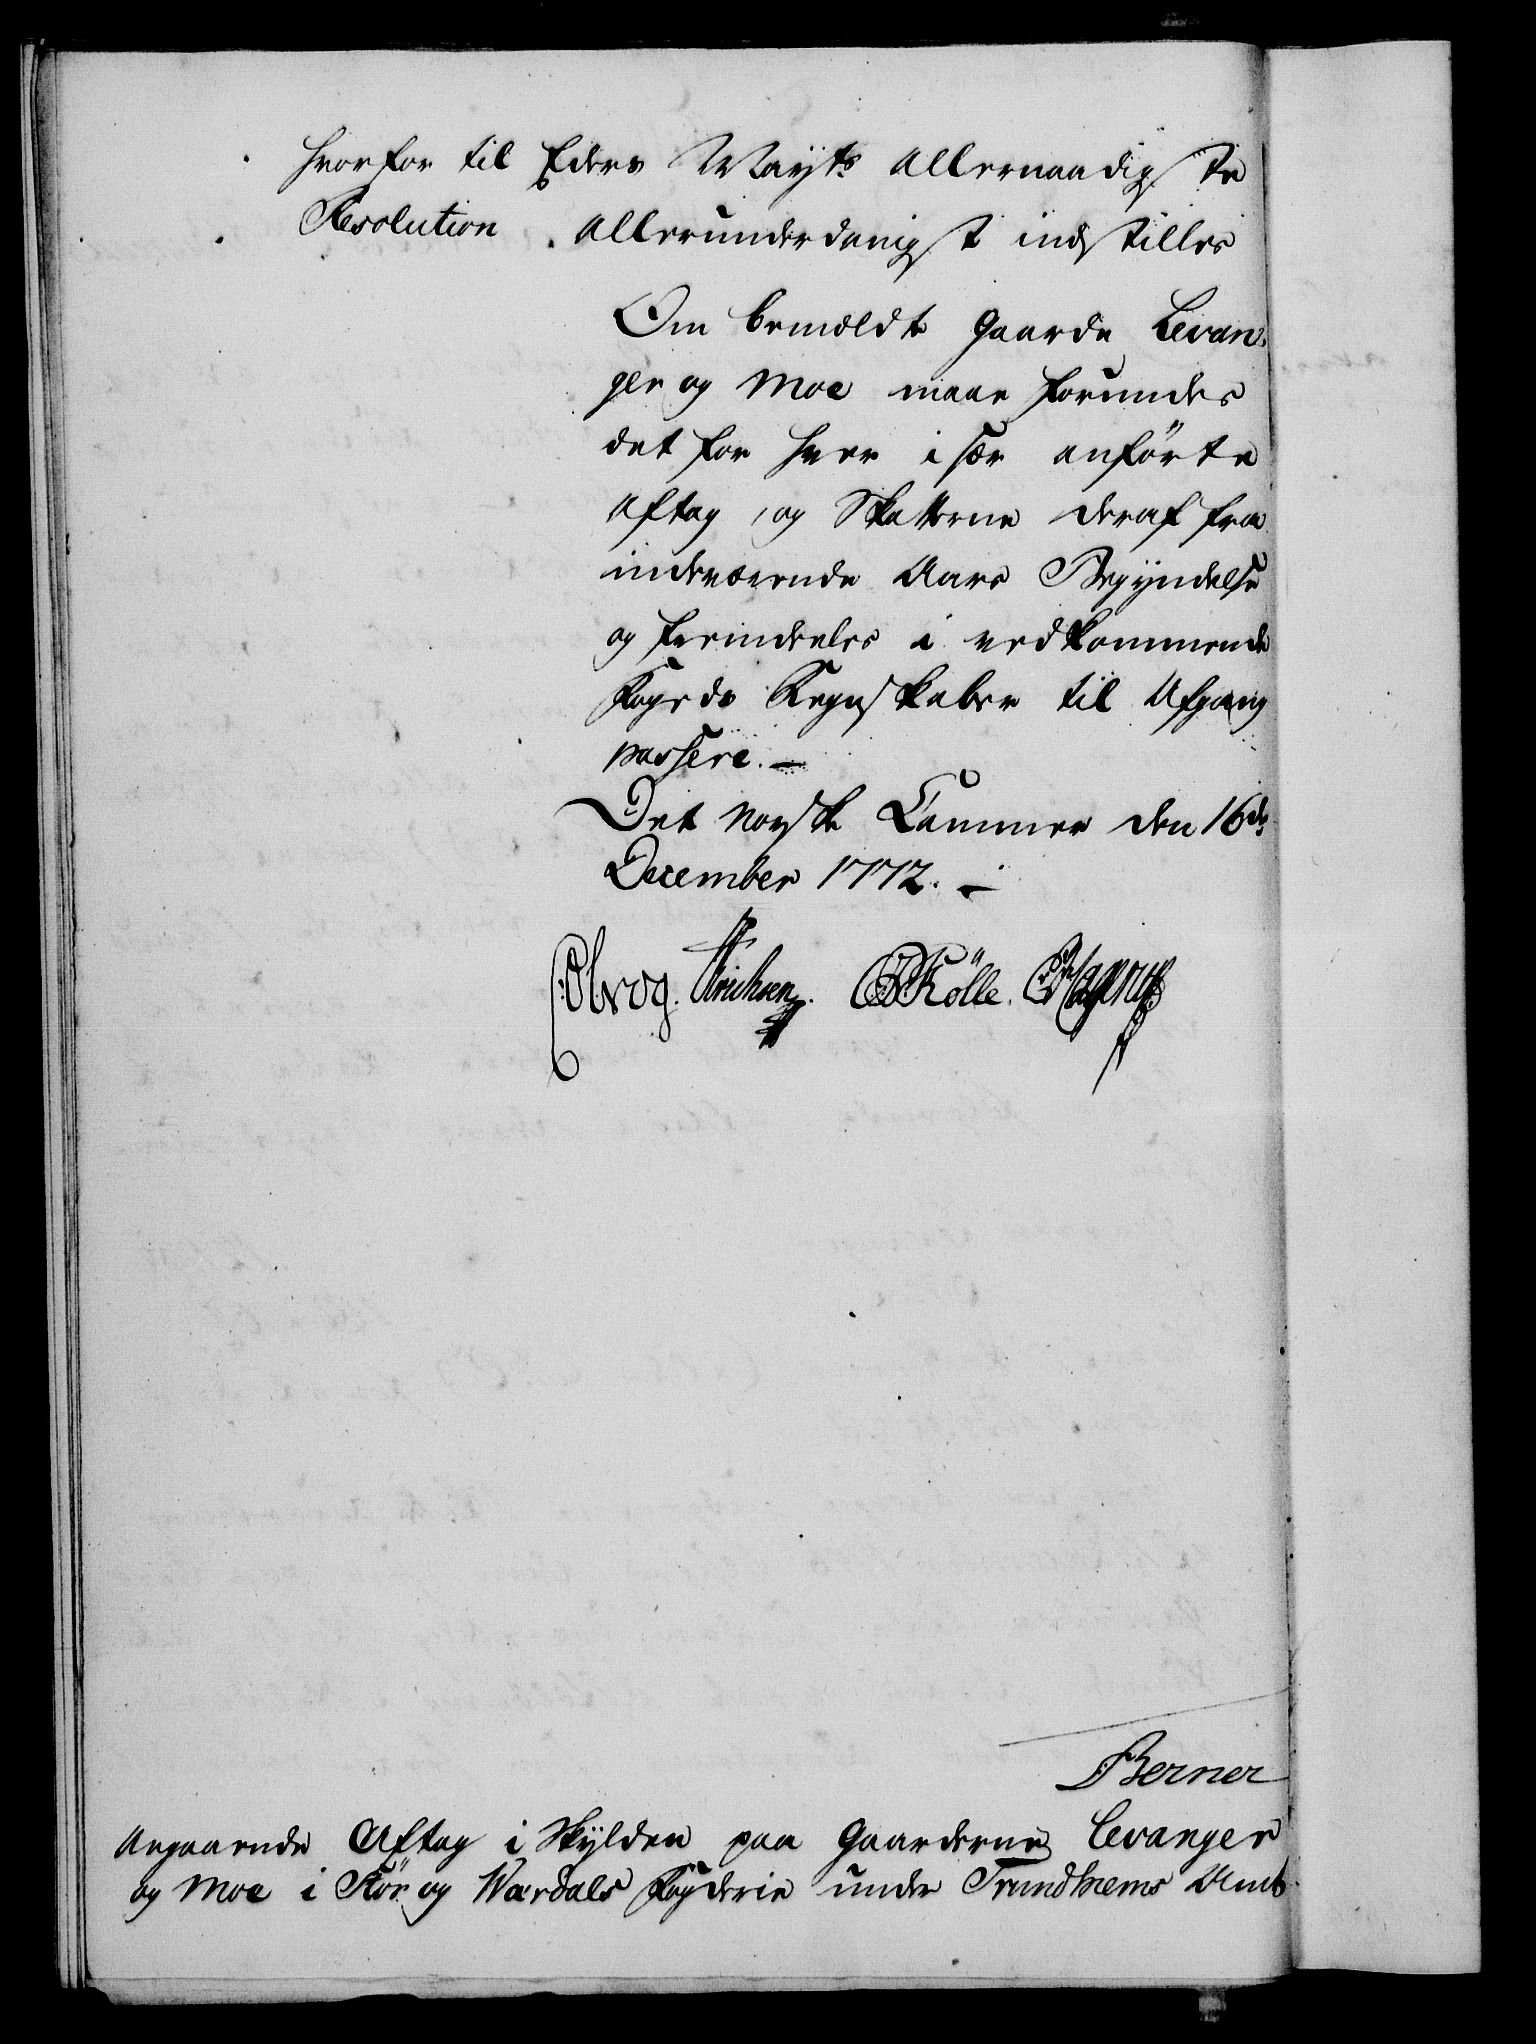 hvorfor til Eders Mayts allernaadigste
Resolution allerunderdanigst indstilles
Om bemeldte Gaarde Levan¬
ger og Moe maae forundes
det for hver især anførte
Aftag, og Skatterne deraf fra
indeværende Aars Begyndelse
og fremdeeles i vedkommende
Fogeds Regnskaber til Afgang
passere. —
Det norske Cammer den 16de
December 1772. —
Obrog. Erichsen. Kölle. Hagerup
Berner
Angaaende Aftag i Skylden paa Gaarderne Levanger
og Moe i Stör og Værdals Fogderie under Trundhiems Amt